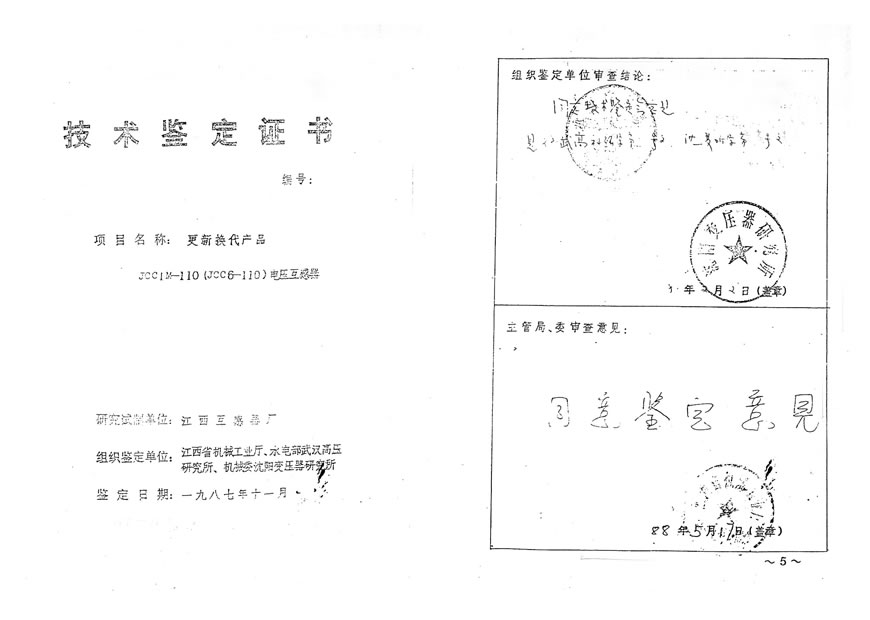 技术鉴定证书
编号：
项目名称：更新换代产品
JCC1M—110（JCC6—110）电压互感器
研究试制单位：江西互感器厂
组织鉴定单位：江西省机械工业厅、水电部武汉高压
研究所、机械委沈阳变压器研究所
鉴定日期：一九八七年十一月
组织鉴定单位审查结论：
同意技术鉴定意见
变压器研究所
年 月 日（盖章）
主管局、委审查意见：
同意鉴定意见
88年5月17日（盖章）
～5～